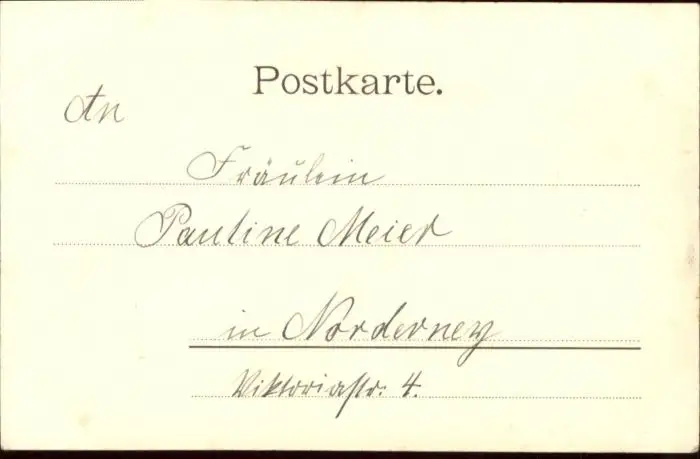 Postkarte.
An
Fräulein
Pauline Meier
in Norderney
Viktoriastr. 4.